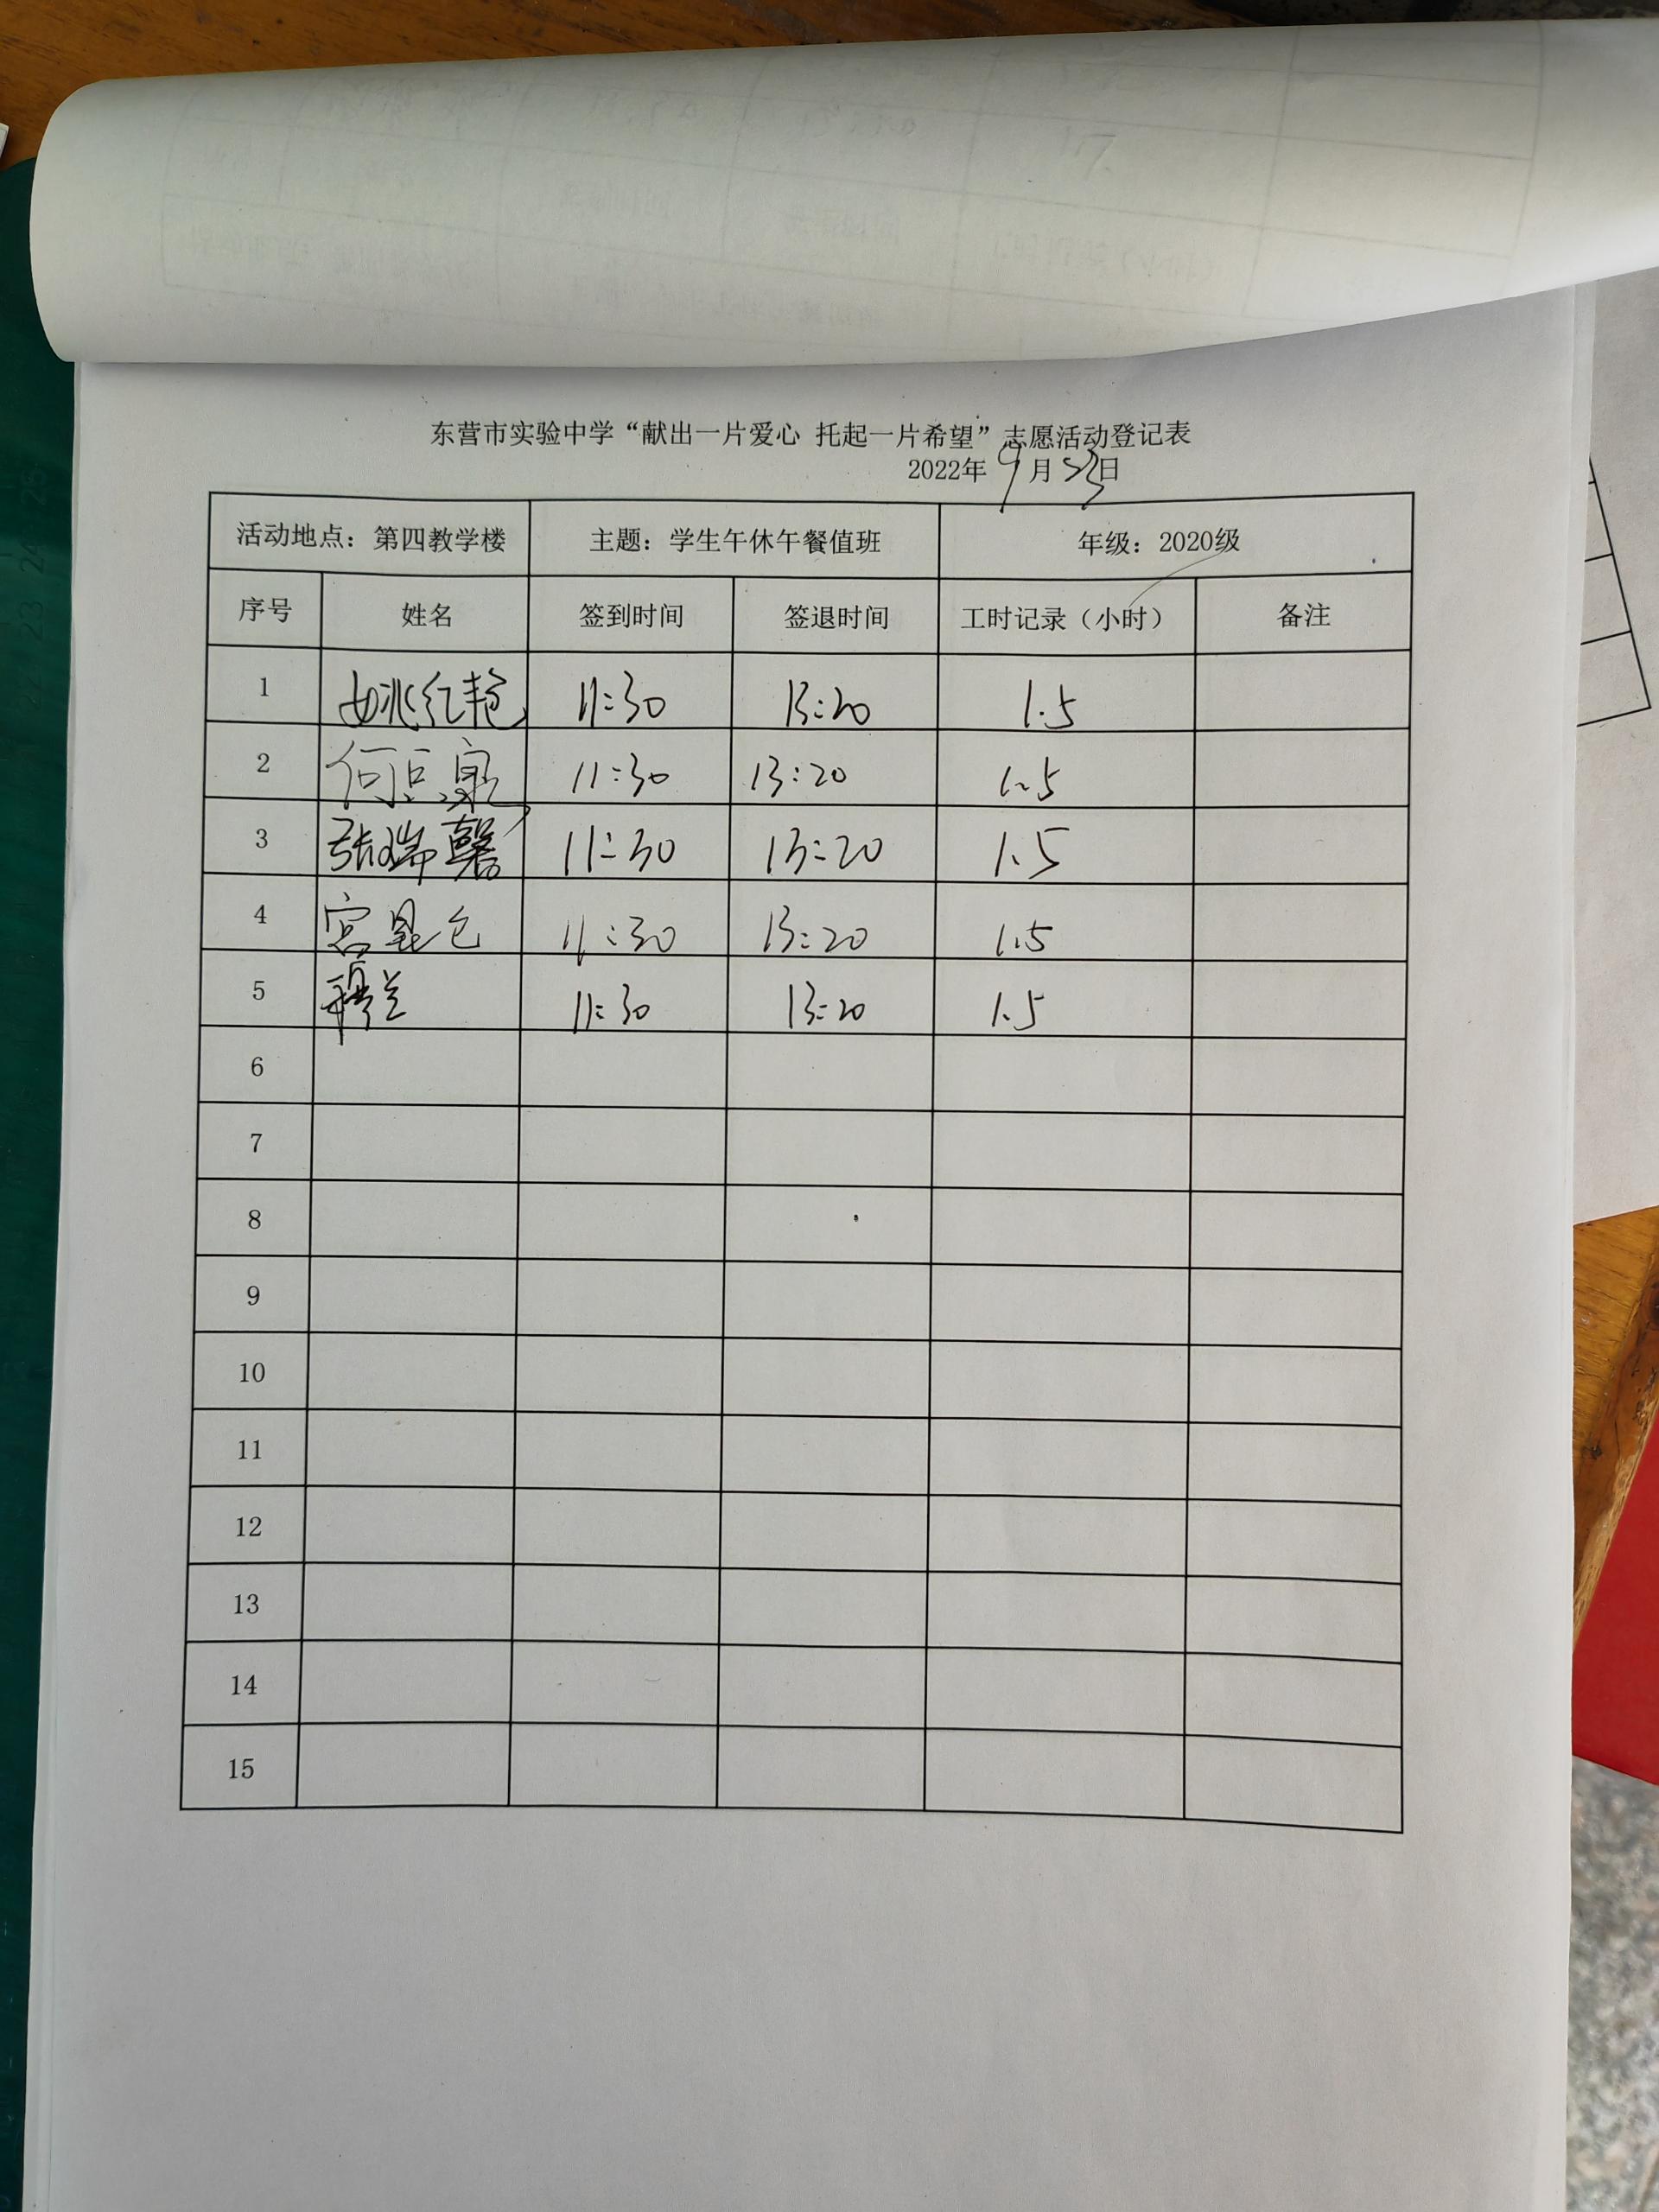 东营市实验中学“献出一片爱心 托起一片希望”志愿活动登记表
2022年9月23日
活动地点：第四教学楼 主题：学生午休午餐值班 年级：2020级
序号 姓名 签到时间 签退时间 工时记录（小时） 备注
1 姚红艳 11:30 13:20 1.5
2 11:30 13:20 1.5
3 张瑞馨 11:30 13:20 1.5
4 11:30 13:20 1.5
5 11:30 13:20 1.5
6
7
8
9
10
11
12
13
14
15